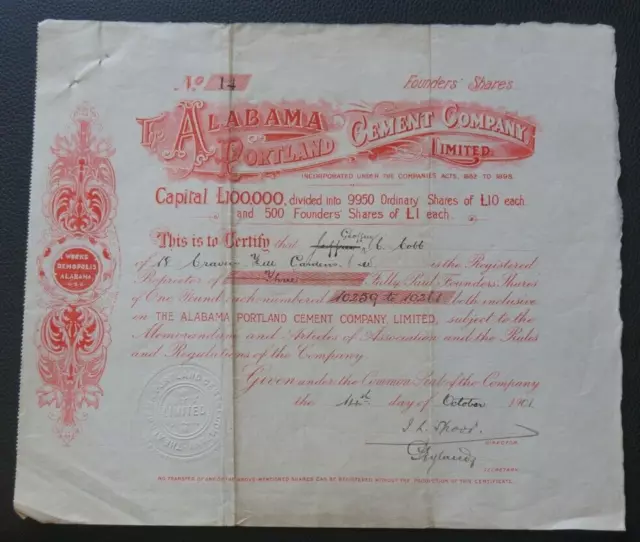 No 14
Founders' Shares
The Alabama
Portland
Cement Company
Limited.
INCORPORATED UNDER THE COMPANIES ACTS, 1862 TO 1898.
Capital £100,000, divided into 9950 Ordinary Shares of £10 each
and 500 Founders' Shares of £1 each.
This is to Certify that Geoffrey E. Cobb
of 18 Craven Hill Gardens, W. is the Registered
Proprietor of Three Fully Paid Founders Shares
of One Pound each numbered 10259 to 10261 both inclusive
in THE ALABAMA PORTLAND CEMENT COMPANY, LIMITED, subject to the
Memorandum and Articles of Association and the Rules
and Regulations of the Company.
Given under the Common Seal of the Company
the day of October 1901
DIRECTOR.
SECRETARY.
NO TRANSFER OF ANY OF THE ABOVE-MENTIONED SHARES CAN BE REGISTERED WITHOUT THE PRODUCTION OF THIS CERTIFICATE.
WORKS
DEMOPOLIS
ALABAMA
U.S.
LIMITED